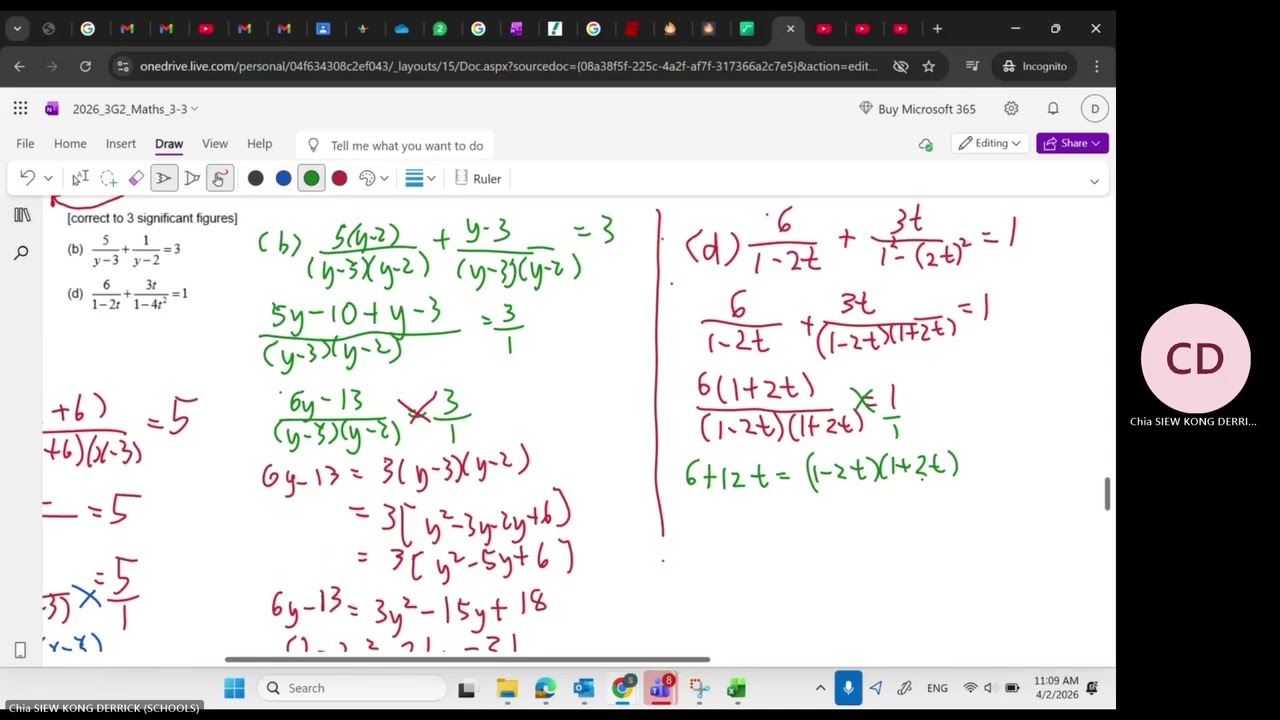 onedrive.live.com/personal/04f634308c2ef043/_layouts/15/Doc.aspx?sourcedoc={08a38f5f-225c-4a2f-af7f-317366a2c7e5}&action=edit...
Incognito
2026_3G2_Maths_3-3
Buy Microsoft 365
D
File Home Insert Draw View Help
Tell me what you want to do
Editing
Share
Ruler
[correct to 3 significant figures]
(b) 5/(y-3) + 1/(y-2) = 3
(d) 6/(1-2t) + 3t/(1-4t²) = 1
+6)/(+6)(x-3) = 5
= 5
= 5/1
(b) 5(y-2)/(y-3)(y-2) + y-3/(y-3)(y-2) = 3
5y-10+y-3/(y-3)(y-2) = 3/1
6y-13/(y-3)(y-2) = 3/1
6y-13 = 3(y-3)(y-2)
= 3[y²-3y-2y+6]
= 3[y²-5y+6]
6y-13 = 3y²-15y+18
(d) 6/(1-2t) + 3t/(1²-(2t)²) = 1
6/(1-2t) + 3t/(1-2t)(1+2t) = 1
6(1+2t)/(1-2t)(1+2t) = 1/1
6+12t = (1-2t)(1+2t)
CD
Chia SIEW KONG DERRI...
Search
ENG
11:09 AM
4/2/2026
Chia SIEW KONG DERRICK (SCHOOLS)